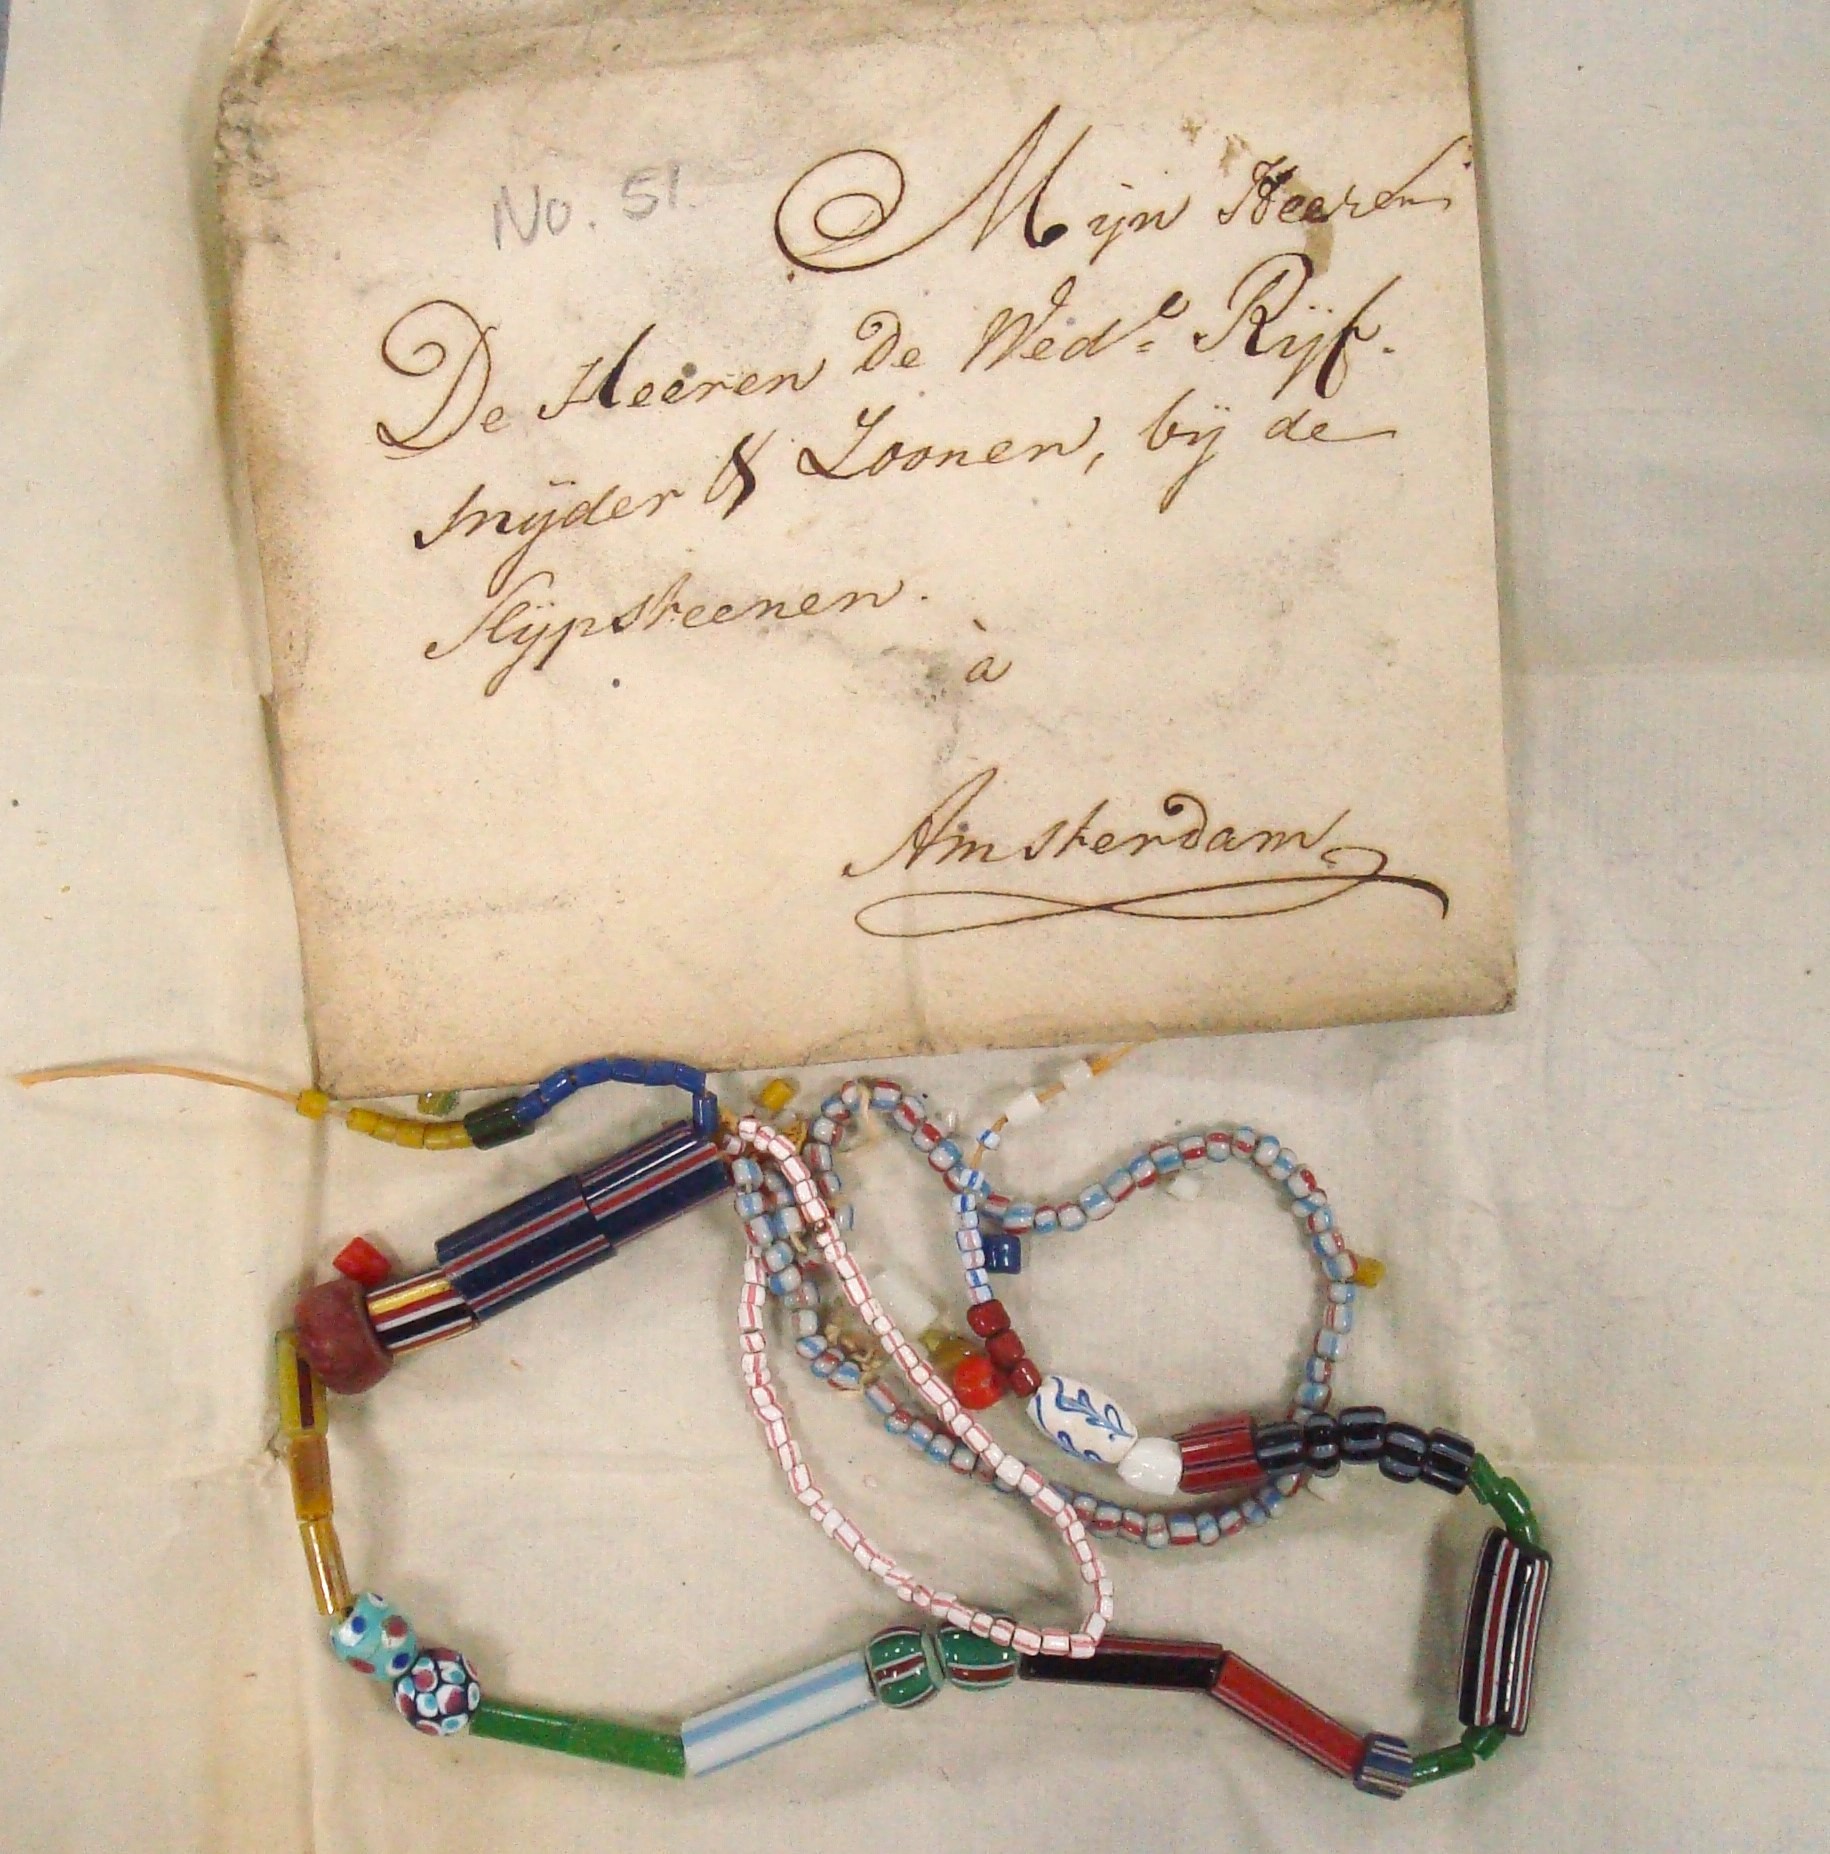 No. 51.
Mijn Heeren
De Heeren de Wed.e Rijf.
snijder & Zoonen, bij de
Slijpsteenen.
à
Amsterdam